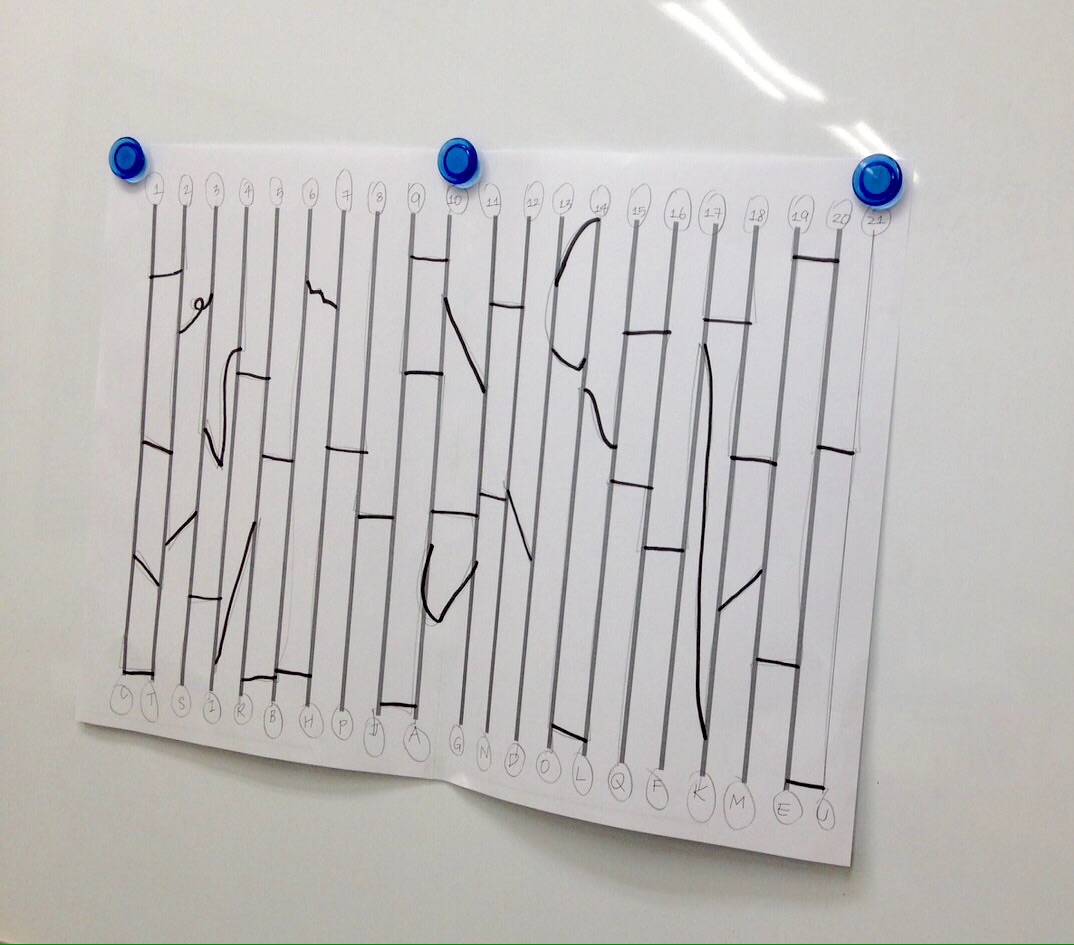 1 2 3 4 5 6 7 8 9 10 11 12 13 14 15 16 17 18 19 20 21
T S 1 R B H P A G N D O L Q F K M E U